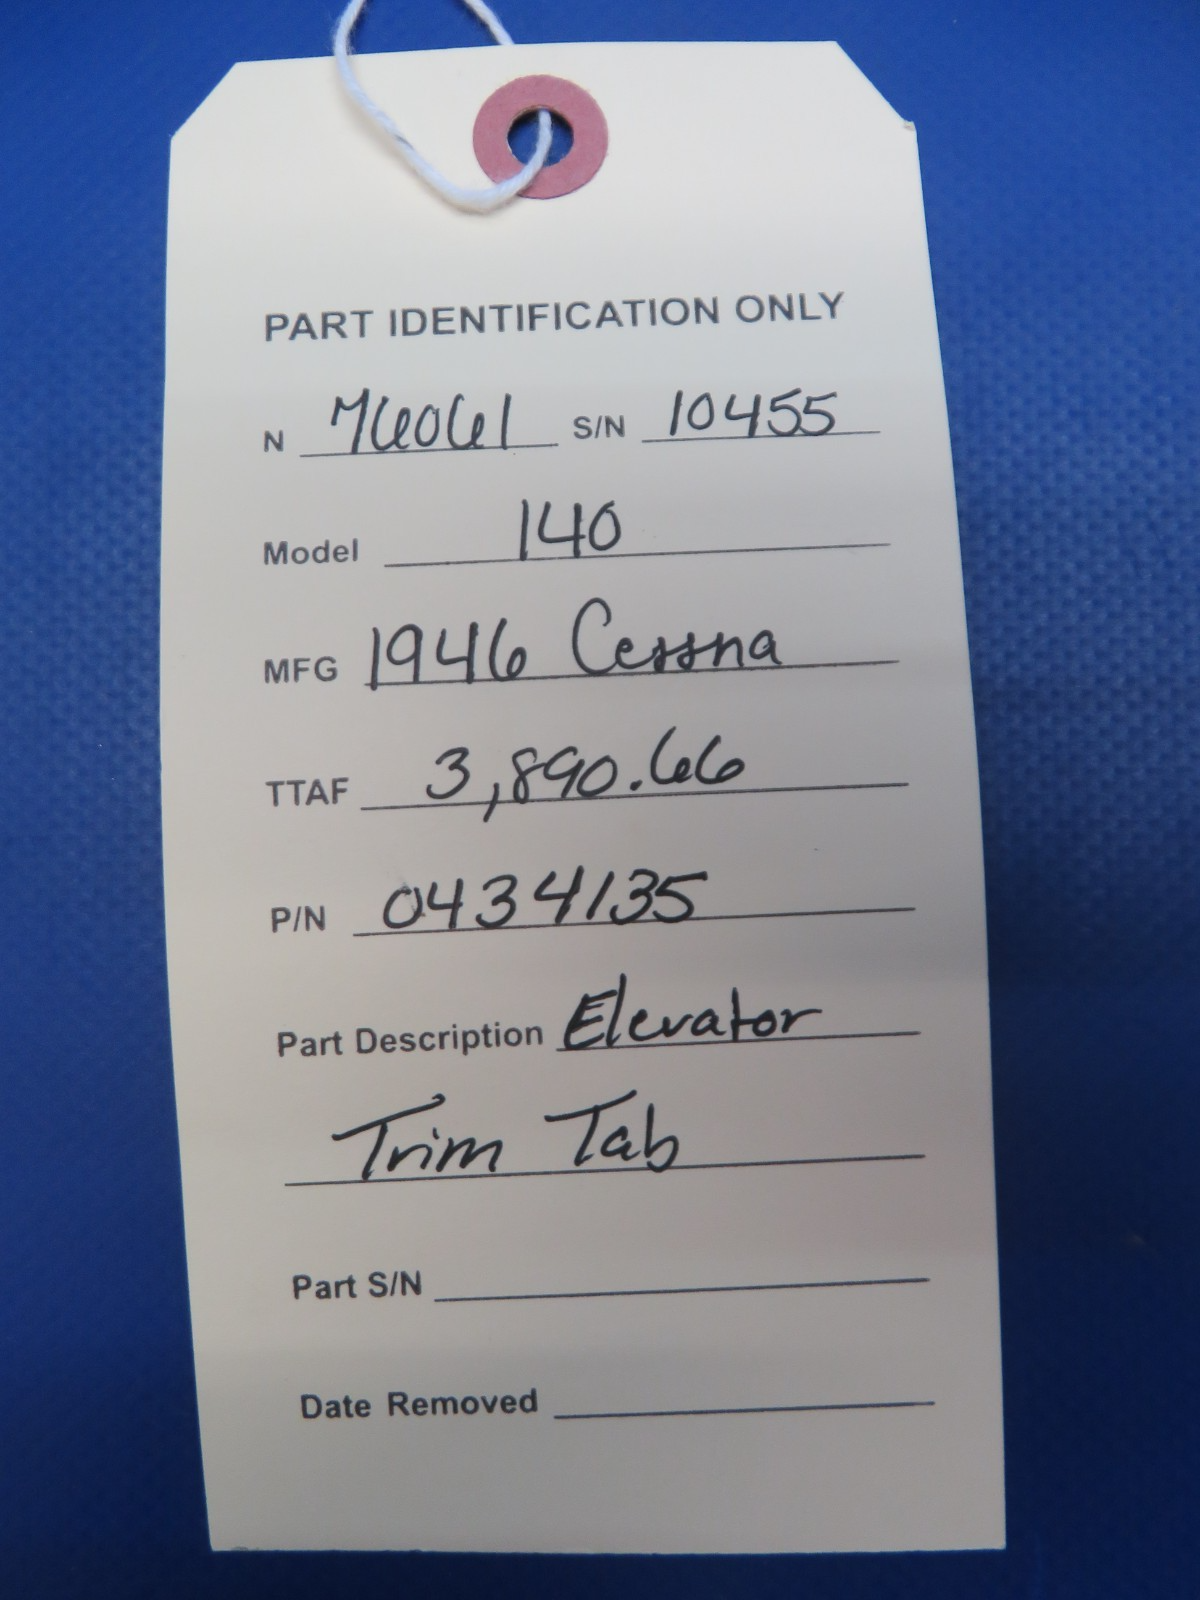 PART IDENTIFICATION ONLY
N 76061 S/N 10455
Model 140
MFG 1946 Cessna
TTAF 3,890.66
P/N 0434135
Part Description Elevator
Trim Tab
Part S/N
Date Removed